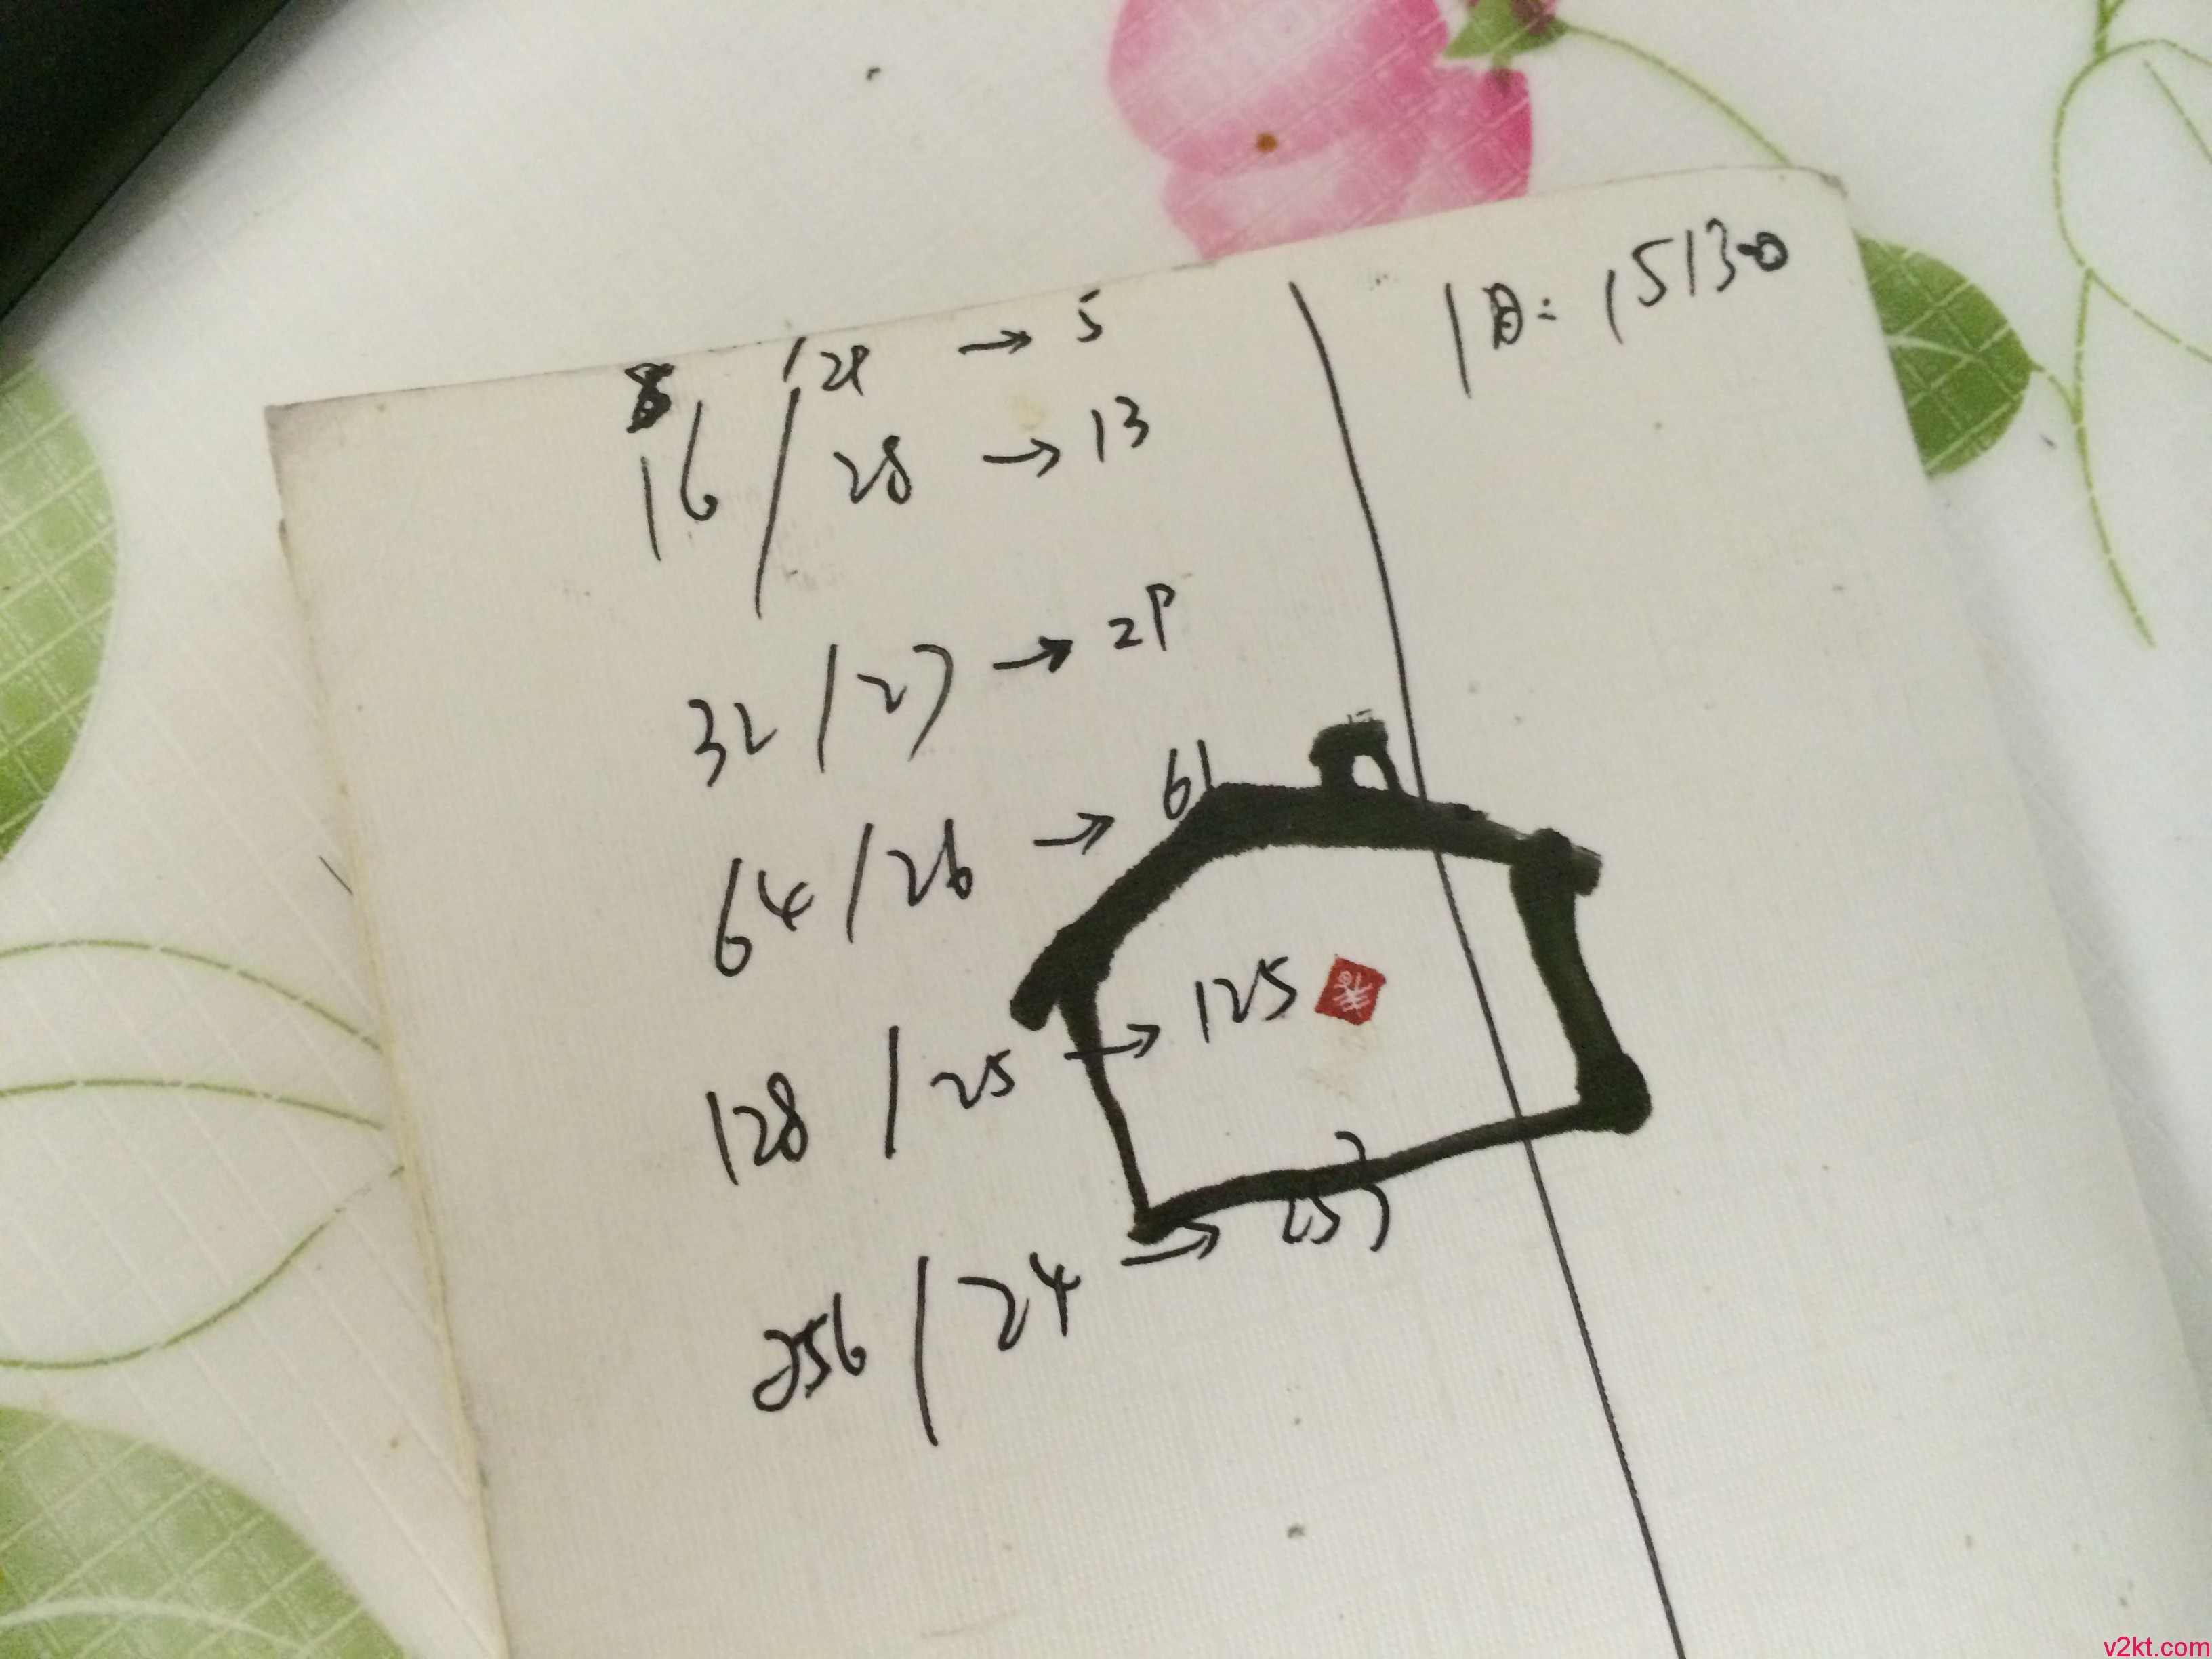 8 /29 → 5
16 /28 → 13
32 /27 → 29
64 /26 → 61
128 /25 → 125
256 /24 → 253
ID: 15130
v2kt.com